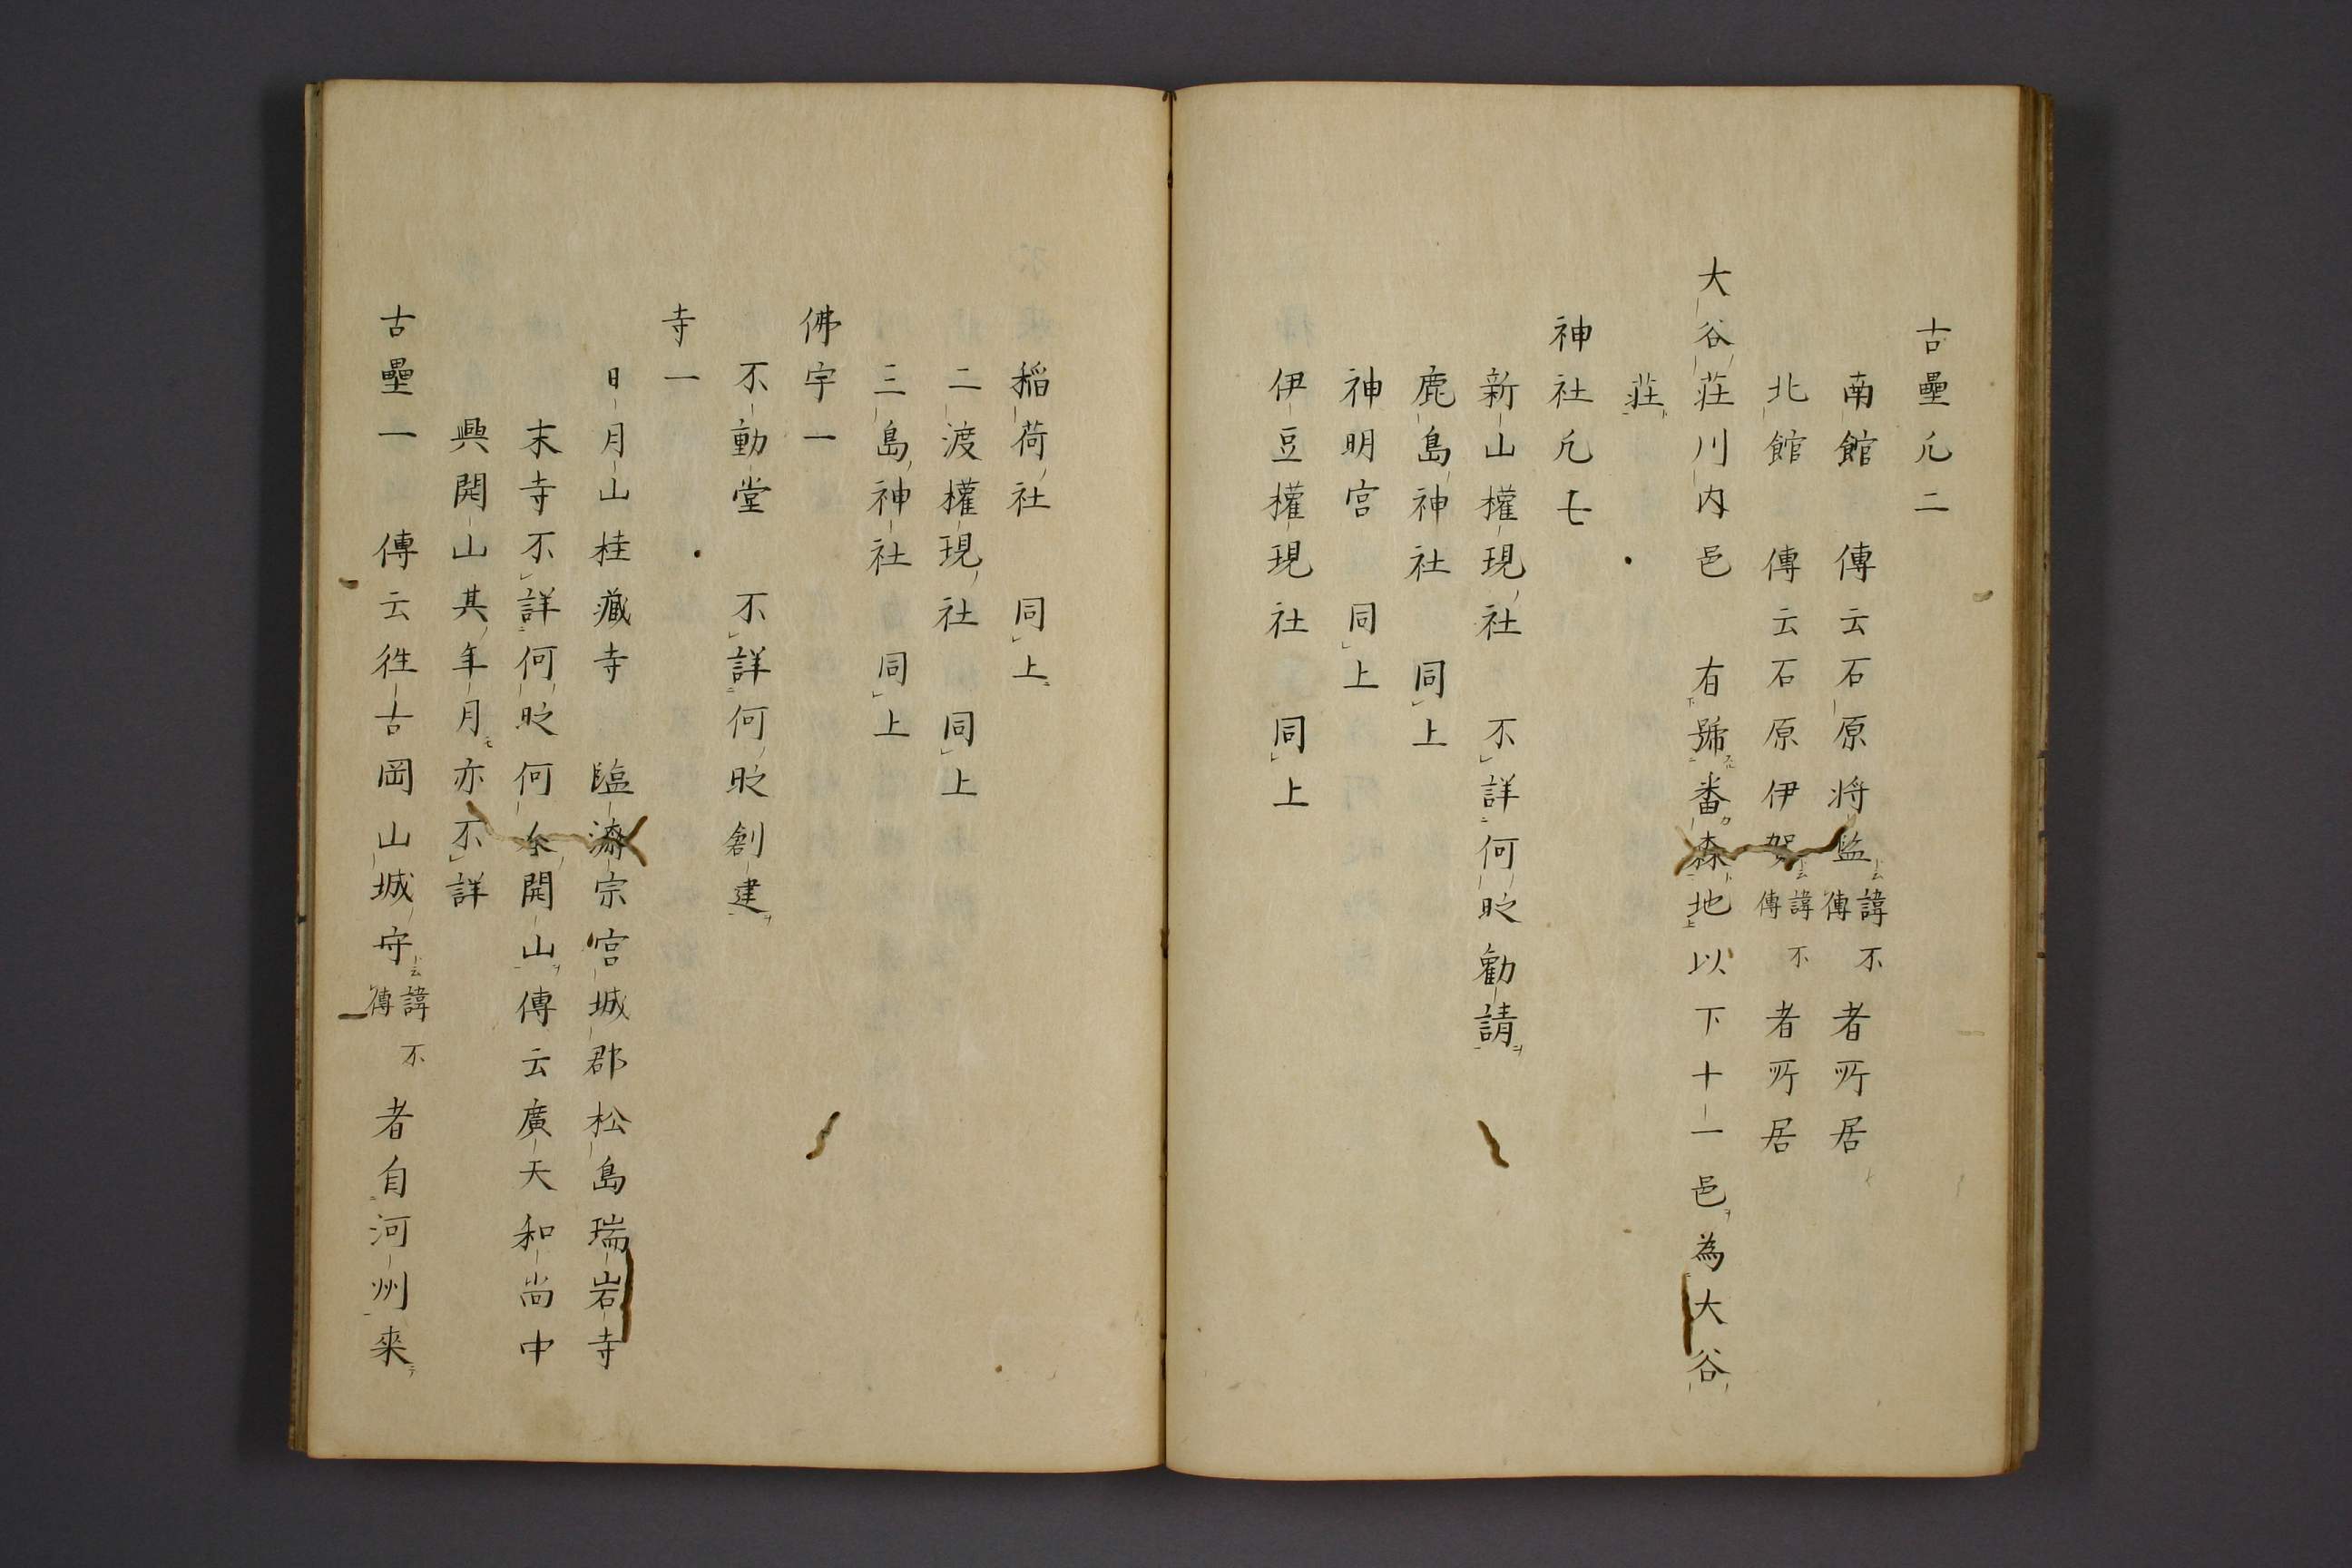 古壘凢二
南館 傳云石原將監諱不傳者所居
北館 傳云石原伊賀諱不傳者所居
大谷莊川内邑 有號番森地以下十一邑為大谷
莊
神社凢七
新山權現社 不詳何時勸請
鹿島神社 同上
神明宮 同上
伊豆權現社 同上
稲荷社 同上
二渡權現社 同上
三島神社 同上
佛宇一
不動堂 不詳何時創建
寺一
日月山桂藏寺 臨濟宗宮城郡松島瑞岩寺
末寺不詳何時何人開山傳云廣天和尚中
興開山其年月亦不詳
古壘一 傳云往古岡山城守諱不傳者自河州來